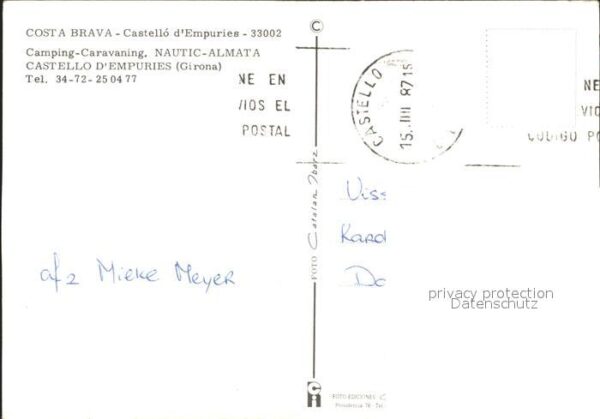 COSTA BRAVA - Castelló d'Empuries - 33002
Camping-Caravaning, NAUTIC-ALMATA
CASTELLO D'EMPURIES (Girona)
Tel. 34-72-25 04 77
©
NE EN
VIOS EL
POSTAL
CASTELLO
15 JUL 87 15
NE
VIO
CODIGO PO
FOTO Catalan Ibarz
Viss
Kard
Do
a/z Mieke Meyer
privacy protection
Datenschutz
FOTO EDICIONES